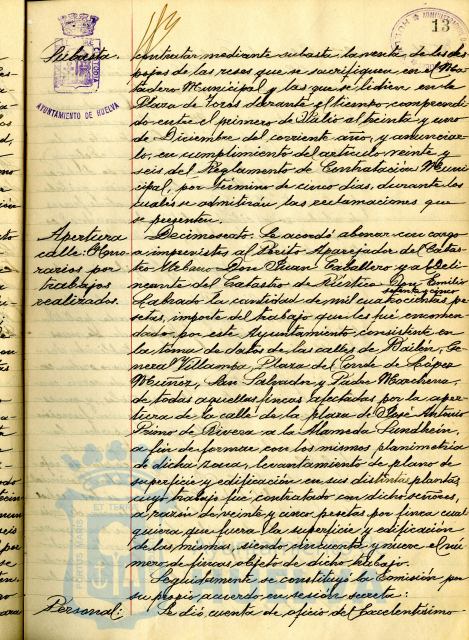 13
Subasta.
AYUNTAMIENTO DE HUELVA
contratar mediante subasta la venta de los des-
pojos de las reses que se sacrifiquen en el Ma-
tadero Municipal y las que se lidien en la
Plaza de Toros durante el tiempo comprendi-
do entre el primero de Julio al treinta y uno
de Diciembre del corriente año, y anunciar-
lo, en cumplimiento del artículo veinte y
seis del Reglamento de Contratación Muni-
cipal, por término de cinco días, durante los
cuales se admitirán las reclamaciones que
se presenten.
Apertura
calle: Hono-
rarios por
trabajos
realizados.
Decimosexto. Se acordó abonar con cargo
a imprevistos al Perito Aparejador del Catas-
tro Urbano Don Juan Caballero y al Deli-
neante del Catastro de Rústica Don Emilio
Labrado la cantidad de mil cuatrocientas
setenta y cinco
pe-
setas, importe del trabajo que les fué encomen-
dado, por este Ayuntamiento, consistente en
la toma de datos de las calles de Bailén, Ge-
neral Villampa, Plaza del Conde de López
Muñoz, San Salvador y Padre Marchena,
de todas aquellas fincas afectadas por la aper-
tura de la calle de la plaza de José Antonio
Primo de Rivera a la Alameda Sundheim,
a fin de formar con los mismos planimetría
de dicha zona, levantamiento de plano de
superficie y edificación en sus distintas plantas,
cuyo trabajo fué contratado con dichos señores,
a razón de veinte y cinco pesetas por finca cual-
quiera que fuera la superficie y edificación
de las mismas, siendo cincuenta y nueve el nú-
mero de fincas objeto de dicho trabajo.
Seguidamente se constituyó la Comisión por
su propio acuerdo en sesión secreta:
Personal:
Se dió cuenta de oficio del Excelentísimo
PORTUS MARIS
ET TERRA